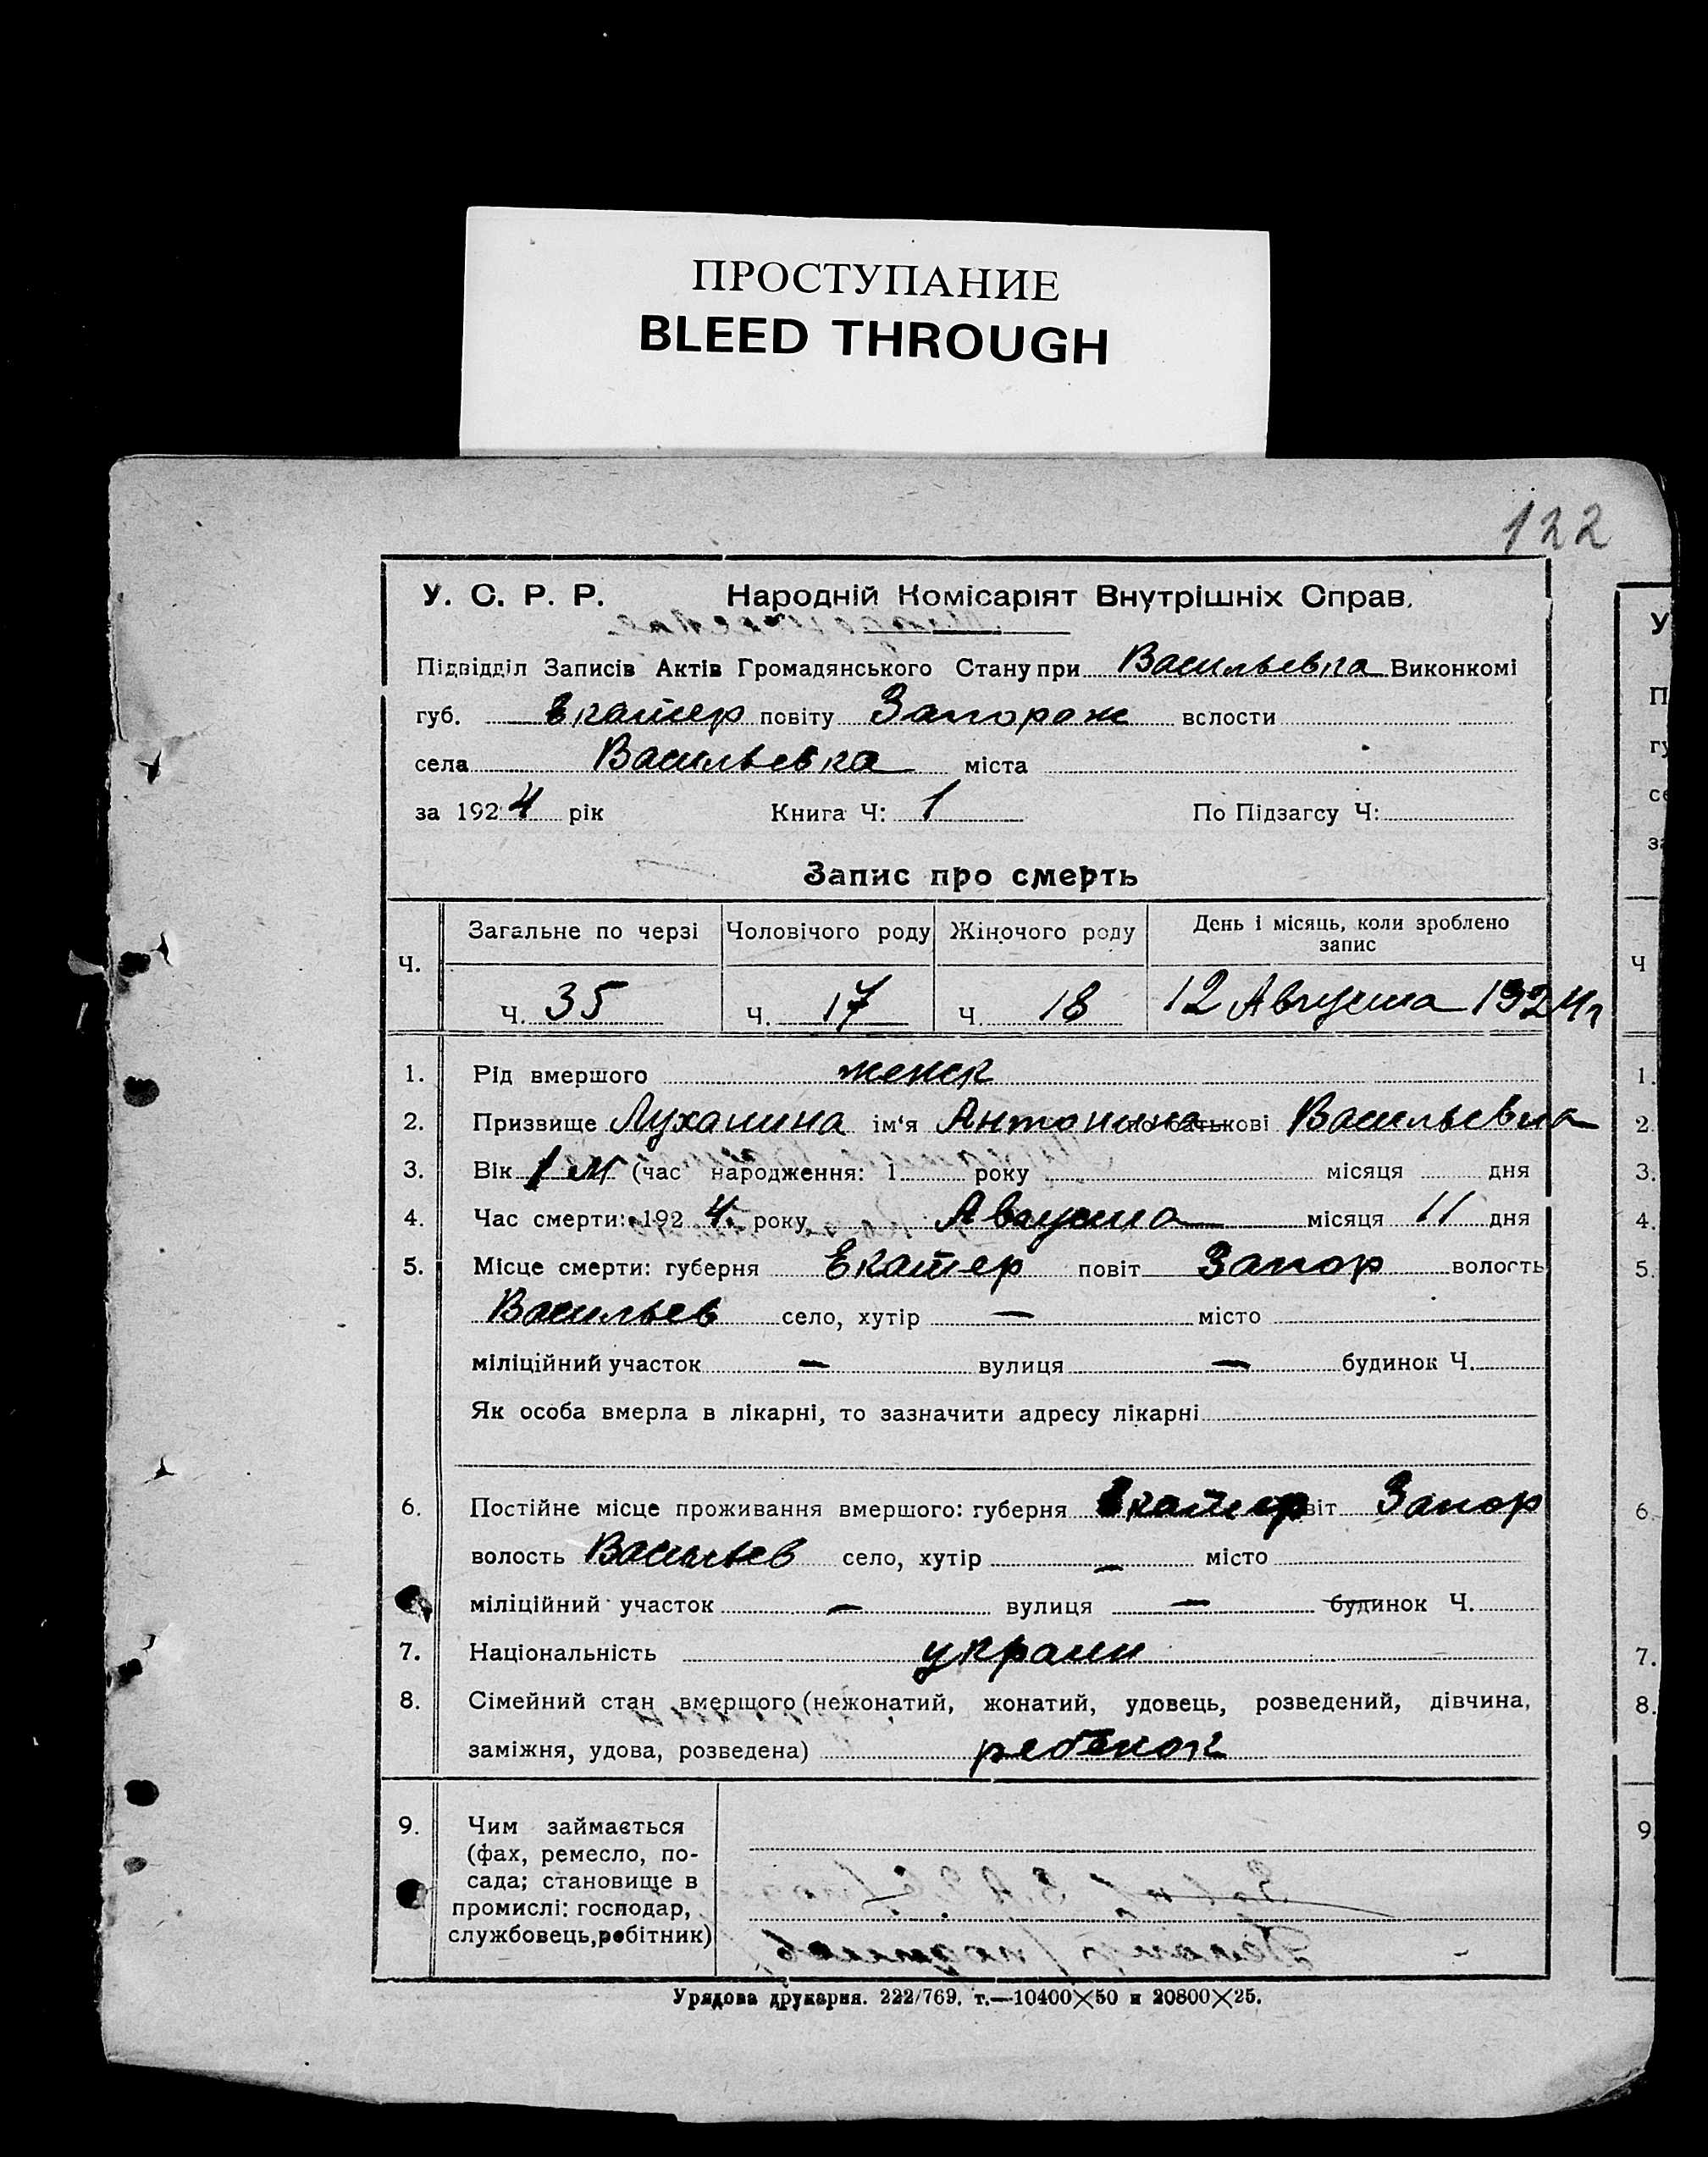 ПРОСТУПАНИЕ
BLEED THROUGH
122
У. С. Р. Р. Народній Комісаріят Внутрішніх Справ.
Підвідділ Записів Актів Громадянського Стану при Васильевка Виконкомі
губ. Екатер повіту Запорож волости
села Васильевка міста
за 1924 рік Книга Ч: 1 По Підзагсу Ч:
Запис про смерть
Ч. Загальне по черзі Чоловічого роду Жіночого роду День і місяць, коли зроблено запис
Ч. 35 Ч. 17 Ч. 18 12 Августа 1924 г
1. Рід вмершого женск
2. Призвище Луханина ім'я Антонина по батькові Васильевна
3. Вік 1 м (час народження: 1 року місяця дня
4. Час смерти: 1924 року Августа місяця 11 дня
5. Місце смерти: губерня Екатер повіт Запор волость
Васильев село, хутір — місто
міліційний участок — вулиця — будинок Ч.
Як особа вмерла в лікарні, то зазначити адресу лікарні
6. Постійне місце проживання вмершого: губерня Екатер повіт Запор
волость Васильев село, хутір — місто
міліційний участок — вулиця — будинок Ч.
7. Національність украин
8. Сімейний стан вмершого (нежонатий, жонатий, удовець, розведений, дівчина,
заміжня, удова, розведена) ребенок
9. Чим займається
(фах, ремесло, по-
сада; становище в
промислі: господар,
службовець, робітник)
Урядова друкарня. 222/769. т.—10400×50 и 20800×25.
У
П
гу
се
за
Ч
1.
2
3.
4.
5.
6.
7.
8.
9